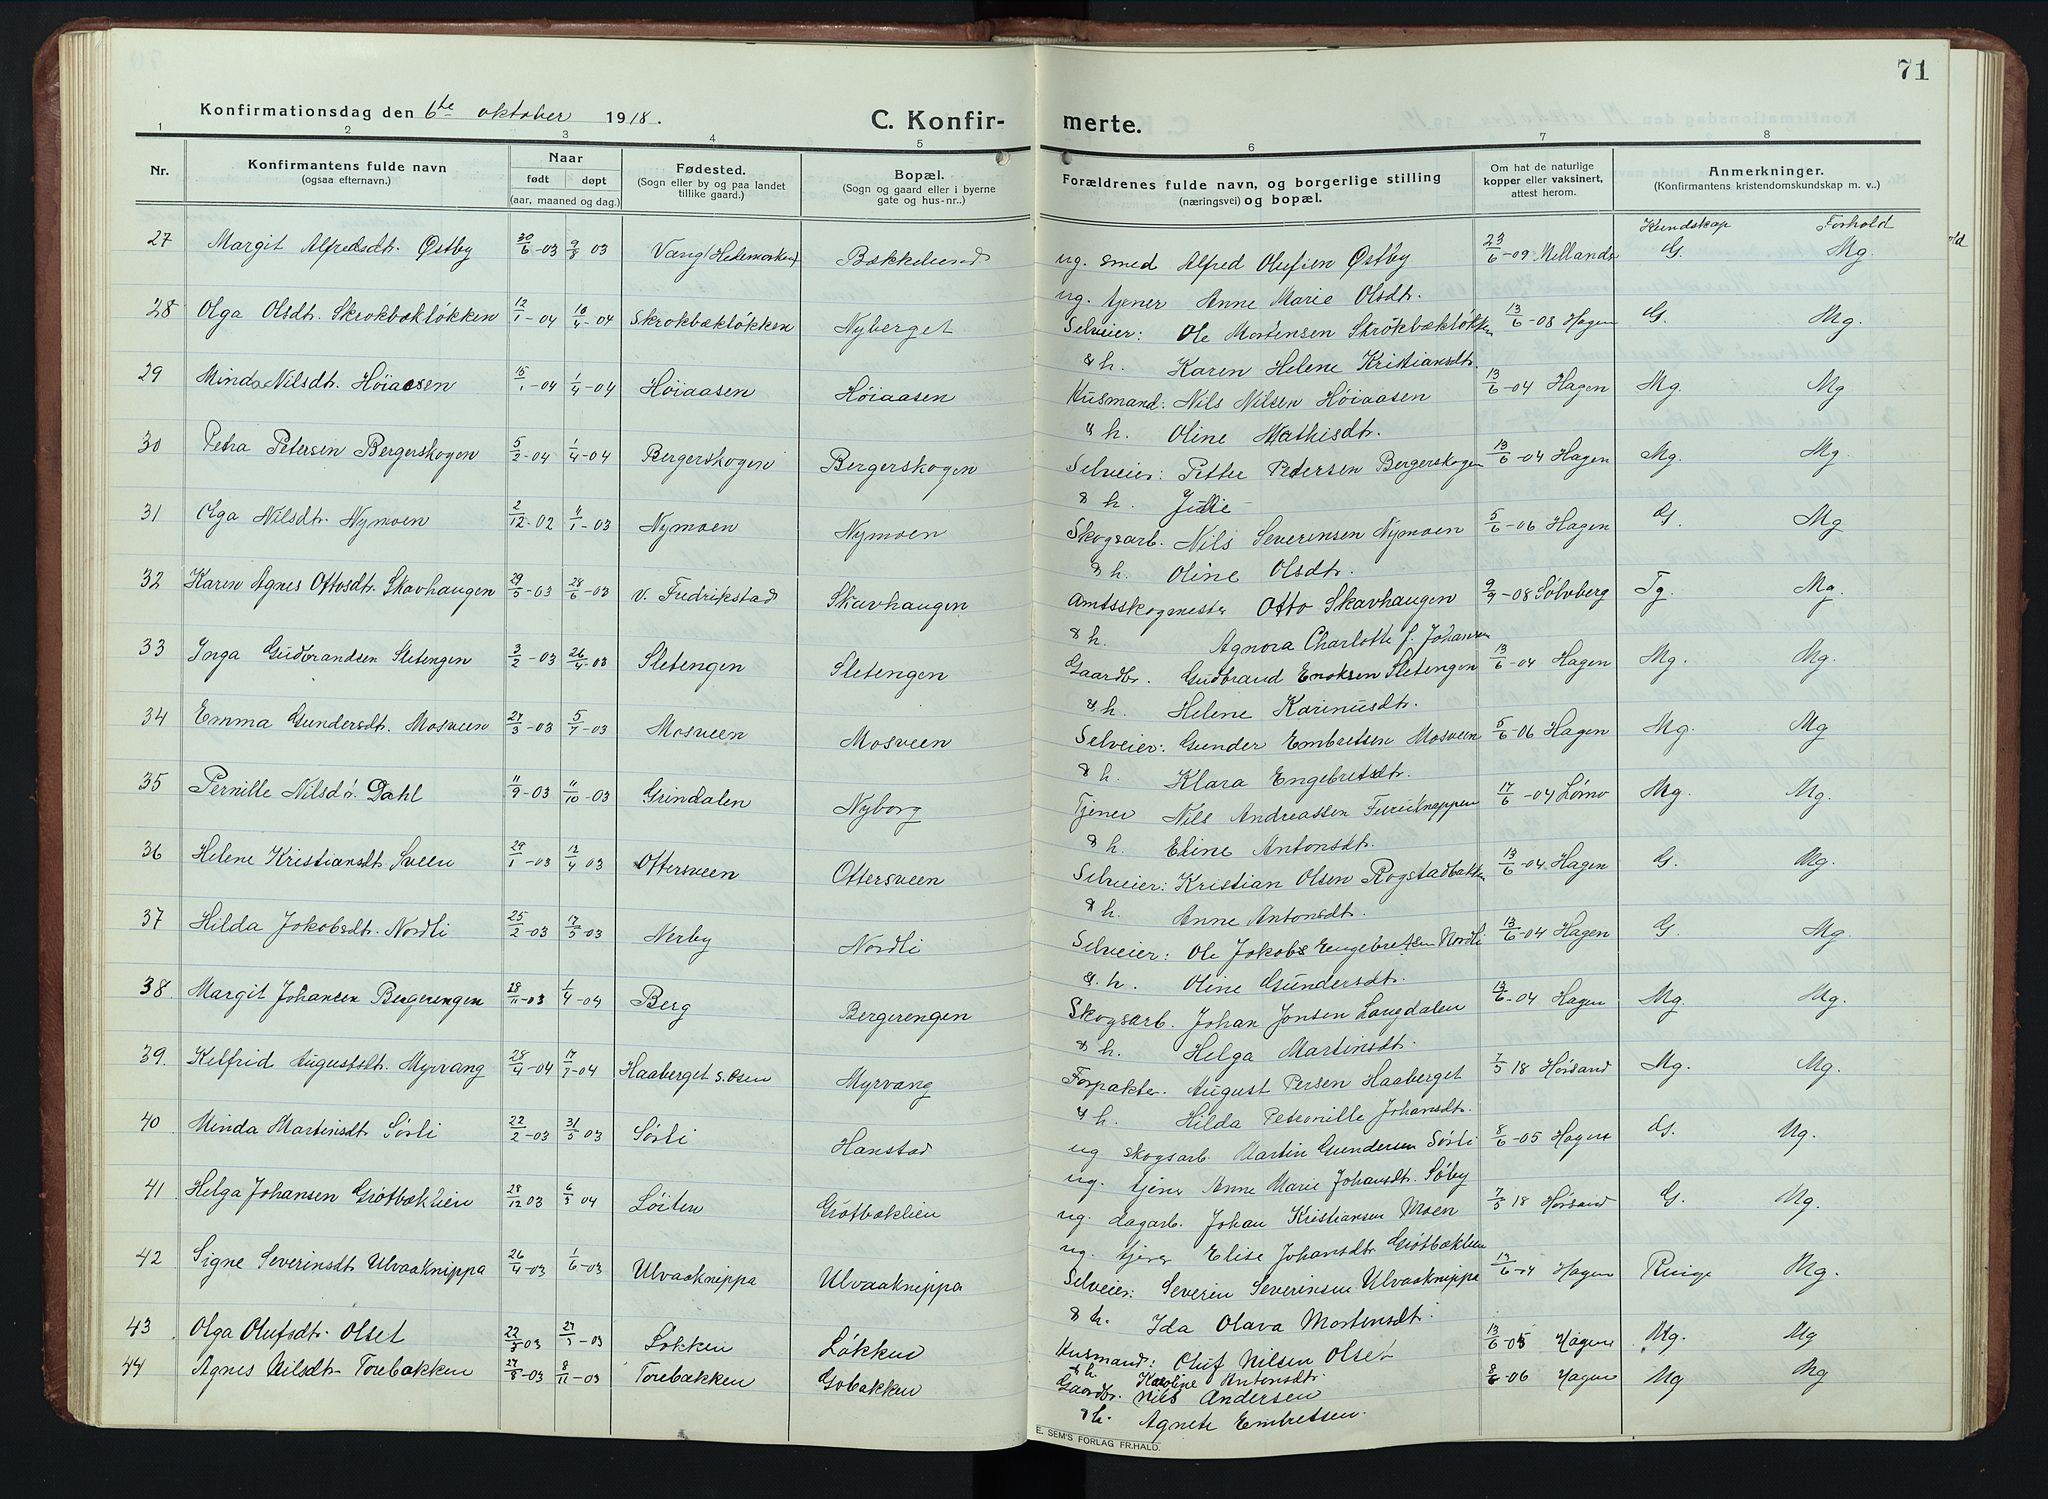 71
Konfirmationsdag den 6te oktober 1918.
C. Konfir- merte.
1 2 3 4 5 6 7 8
Nr.
Konfirmantens fulde navn
(ogsaa efternavn.)
Naar
født døpt
(aar, maaned og dag.)
Fødested.
(Sogn eller by og paa landet
tillike gaard.)
Bopæl.
(Sogn og gaard eller i byerne
gate og hus-nr..)
Forældrenes fulde navn, og borgerlige stilling
(næringsvei) og bopæl.
Om hat de naturlige
kopper eller vaksinert,
attest herom.
Anmerkninger.
(Konfirmantens kristendomskundskap m. v..)
Kundskap Forhold
27 Margit Alfredsdt. Østby 30/6-03 9/8 03 Vang (Hedemarken) Bækkelund ug. smed Alfred Olufsen Østby 23/6-09 G. Mg.
ug. tjener Anne Marie Olsdt.
28 Olga Olsdt. Skrokbækløkken 12/1-04 10/4-04 Skrokbækløkken Nyberget Selveier: Ole Mortensen Skrokbækløkken 13/6-08 Hagen G. Mg.
& h. Karen Helene Kristiansdt.
29 Minda Nilsdt. Høiaasen 15/1-04 1/4-04 Høiaasen Høiaasen Husmand: Nils Nilsen Høiaasen 13/6-04 Hagen Mg. Mg
& h. Oline Mathisdt.
30 Petra Petersen Bergerskogen 5/2-04 1/4-04 Bergerskogen Bergerskogen Selveier: Petter Pedersen Bergerskogen 13/6-04 Hagen Mg. Mg.
& h. Julie
31 Olga Nilsdt. Nymoen 2/12-02 11/1-03 Nymoen Nymoen Skogsarb. Nils Severinsen Nymoen 5/6-06 Hagen G. Mg
& h. Oline Olsdt.
32 Karen Agnes Ottosdt. Skavhaugen 29/5-03 28/6-03 v. Fredrikstad Skavhaugen Amtsskogmester Otto Skavhaugen 9/9-08 Sølvberg Tg. Mg.
& h. Agnora Charlotte f. Johansen
33 Inga Gudbrandsen Sletengen 3/2-03 26/4-03 Sletengen Sletengen Gaardbr. Gudbrand Enoksen Sletengen 13/6-04 Hagen Mg. Mg.
& h. Helene Karinusdt.
34 Emma Gundersdt. Mosveen 27/3-03 5/7-03 Mosveen Mosveen Selveier: Gunder Embretsen Mosveen 5/6-06 Hagen Mg. Mg
& h. Klara Engebretsdt.
35 Pernille Nilsd. Dahl 11/9-03 11/10-03 Grindalen Nyborg Tjener Nils Andreassen 17/6-04 Lømo Mg. Mg.
& h. Eline Antonsdt.
36 Helene Kristiansdt. Sveen 29/1-03 13/4 03 Ottersveen Ottersveen Selveier: Kristian Olsen Rogstadbakken 13/6-04 Hagen G. Mg.
& h. Anne Antonsdt.
37 Hilda Jakobsdt. Nordli 25/2-03 17/5-03 Nerby Nordli Selveier: Ole Jakobs Engebretsen Nordli 13/6-04 Hagen G. Mg.
& h. Oline Gundersdt.
38. Margit Johansen Bergerengen 28/11-03 1/4-04 Berg Bergerengen Skogsarb. Johan Jonsen Langdalen 13/6-04 Hagen Mg. Mg.
& h. Helga Martinsdt.
39. Kelfrid Augustsdt. Myrvang 28/4-04 17/7-04 Haaberget s. Osen Myrvang Forpakter. August Persen Haaberget 7/5 18 Hørsand Mg. Mg.
& h. Hilda Petronille Johansdt.
40 Minda Martinsdt. Sørli 22/2-03 31/5 03 Sørli Hanstad ug skogsarb. Martin Gundersen Sørli 8/6-05 Hagen G. Mg.
ug. tjener Anne Marie Johansdt. Søby
41 Helga Johansen Grøtbæklien 28/12 03 6/3 04 Løiten Grøtbæklien ug. dagarb. Johan Kristiansen Moen 7/5 18 Hørsand G. Mg.
ug. tjener Elise Johansdt. Grøtbæklien
42 Signe Severinsdt. Ulvaaknippa 26/4-03 1/6-03 Ulvaaknippa Ulvaaknippa Selveier: Severin Severinsen Ulvaaknippa 13/6-04 Hagen Ringe Mg.
& h. Ida Olava Mortensdt.
43 Olga Olufsdt. Olset 03 03 Løkken Løkken Husmand: Oluf Nilsen Olset 13/6-05 Hagen Mg. Mg
& h Karoline Antonsdt.
44 Agnes Nilsdt. Torebakken 27/8-03 8/11-03 Torebakken Gobakken Gaardbr. Nils Andersen 8/6-06 Hagen Mg Mg
& h. Agnete Embretsen.
E. SEM'S FORLAG FR.HALD.